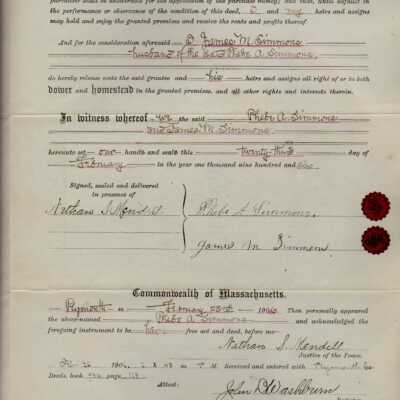 the performance or observance of the condition of this deed, I and my heirs and assigns
may hold and enjoy the granted premises and receive the rents and profits thereof
And for the consideration aforesaid I James M. Simmons
husband of the said Phebe A. Simmons.
do hereby release unto the said grantee and his heirs and assigns all right of or to both
dower and homestead in the granted premises, and all other rights and interests therein.
In witness whereof we the said Phebe A. Simmons
and James M. Simmons
hereunto set our hands and seals this twenty-third day of
February in the year one thousand nine hundred and six
Signed, sealed and delivered
in presence of
Nathan S. Mendell
Phebe A. Simmons.
James M Simmons
Commonwealth of Massachusetts.
Plymouth ss February 23rd 1906. Then personally appeared
the above-named Phebe A. Simmons and acknowledged the
foregoing instrument to be her free act and deed, before me—
Nathan S. Mendell
Justice of the Peace.
1906, M. Received and entered with Plymouth Co.
Deeds, book page
Attest:
John D. Washburn